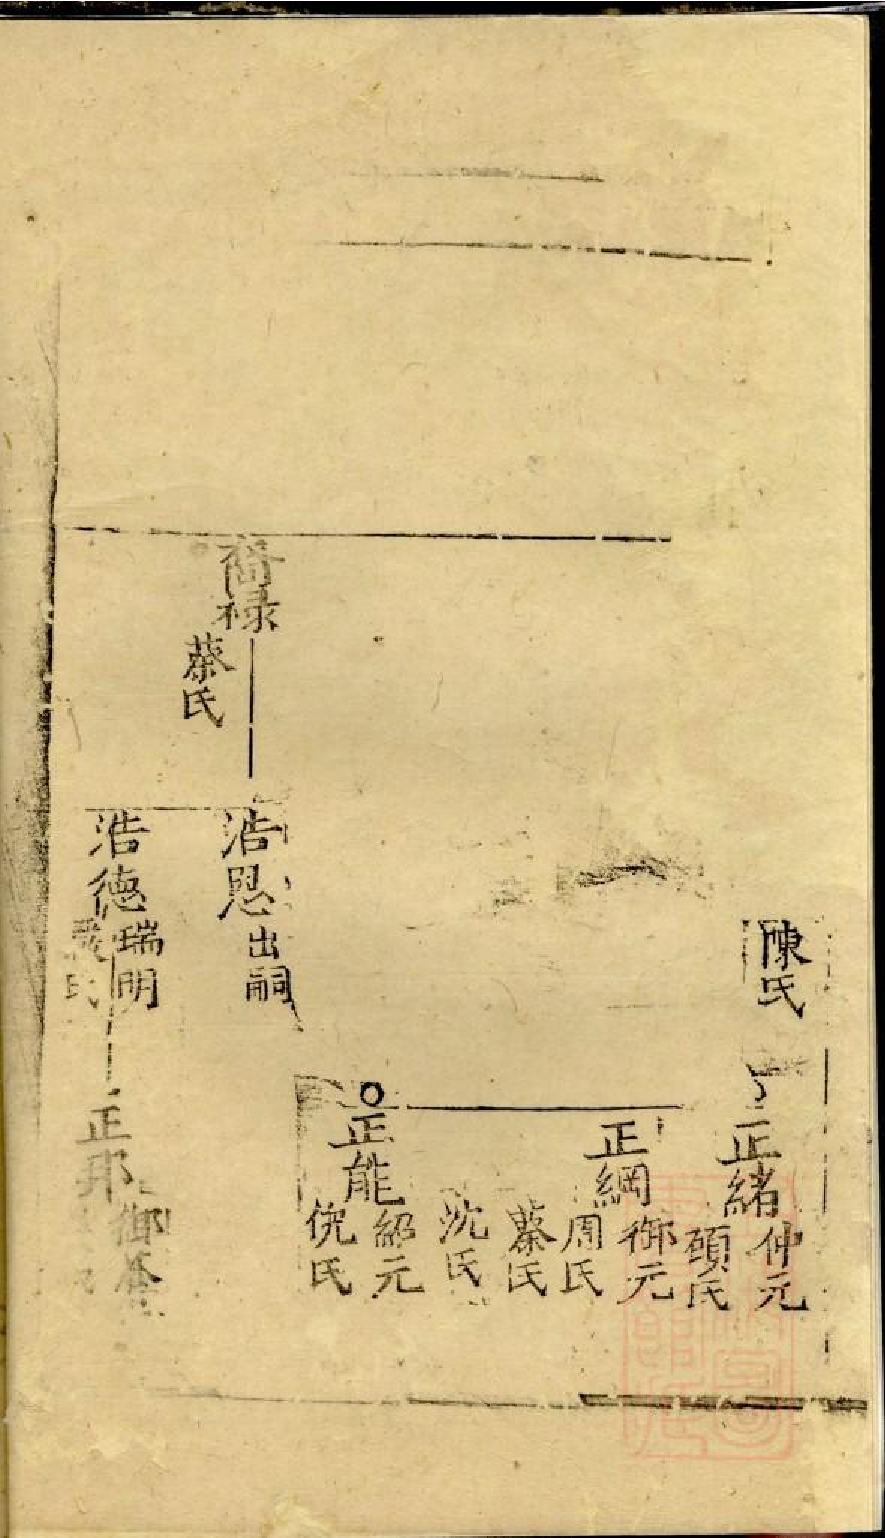 陳氏
正緒
仲元
顧氏
正綱
御元
周氏
蔡氏
沈氏
正能
紹元
倪氏
裔祿
蔡氏
浩恩
出嗣
浩德
瑞明
氏
正邦
御